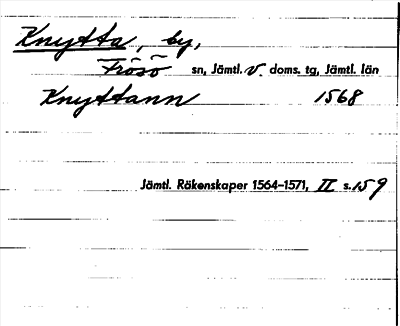 Knytta, by,
Frösö sn, Jämtl. v. doms. tg, Jämtl. län
Knyttann 1568
Jämtl. Räkenskaper 1564–1571, II s. 159